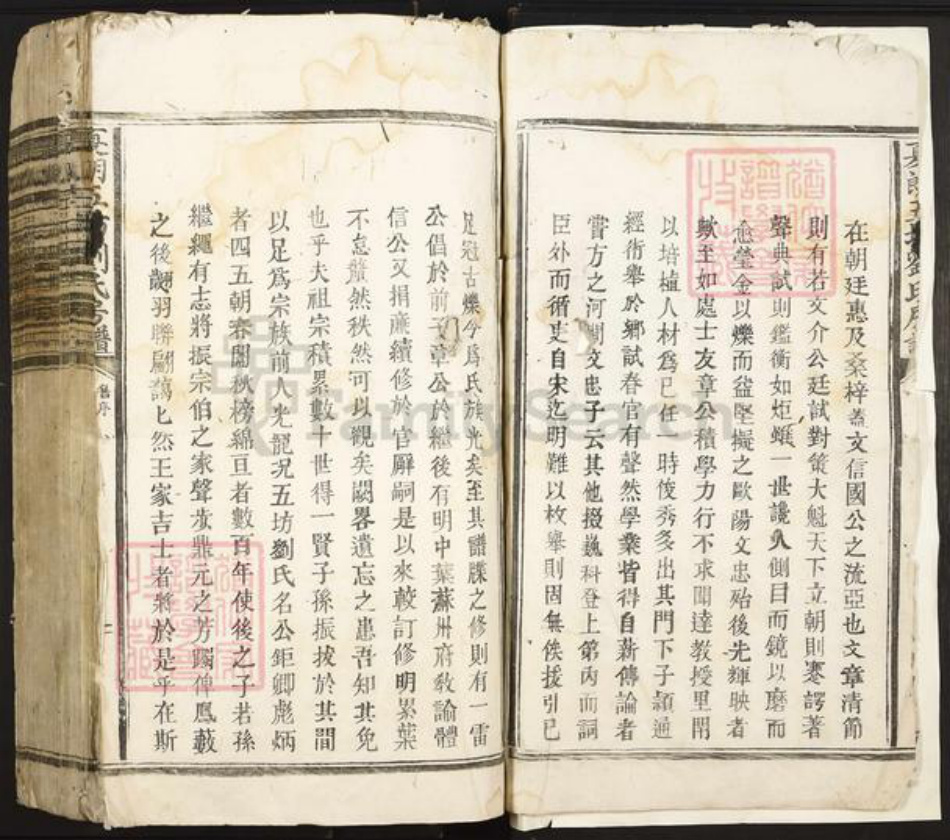 在朝廷惠及桑梓蓋文信國公之流亞也文章清節
則有若文介公廷試對策大魁天下立朝則蹇諤著
聲典試則鑑衡如炬雖一世讒人側目而鏡以磨而
愈瑩金以爍而益堅擬之歐陽文忠殆後先輝映者
歟至如處士友章公積學力行不求聞達教授里閈
以培植人材為已任一時俊秀多出其門下子穎通
經術舉於鄉試春官有聲然學業皆得自薪傳論者
嘗方之河間文忠子云其他掇巍科登上第內而詞
臣外而循吏自宋迄明難以枚舉則固無俟援引已
足冠古爍今為氏族光矣至其譜牒之修則有一雷
公倡於前子章公於繼後有明中葉蘇州府教諭體
信公又捐廉續修於官廨嗣是以來較訂修明累葉
不怠釐然秩然可以觀矣闕畧遺忘之患吾知其免
也乎夫祖宗積累數十世得一賢子孫振拔於其間
以足為宗族前人光寵況五坊劉氏名公鉅卿彪炳
者四五朝春闈秋榜綿亘者數百年使後之子若孫
繼繩有志將振宗伯之家聲步鼎元之芳躅俾鳳藪
之後翽羽聯翩藹匕然王家吉士者將於是乎在斯
劉氏房譜
舊序
FamilySearch